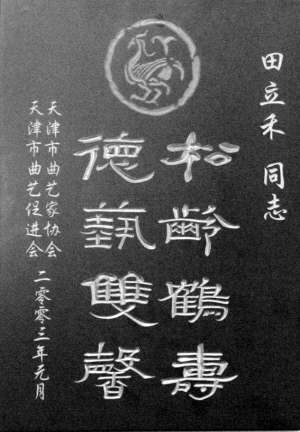 田立禾 同志
松齡鶴壽
德藝雙馨
天津市曲艺家协会
天津市曲艺促进会
二零零三年元月